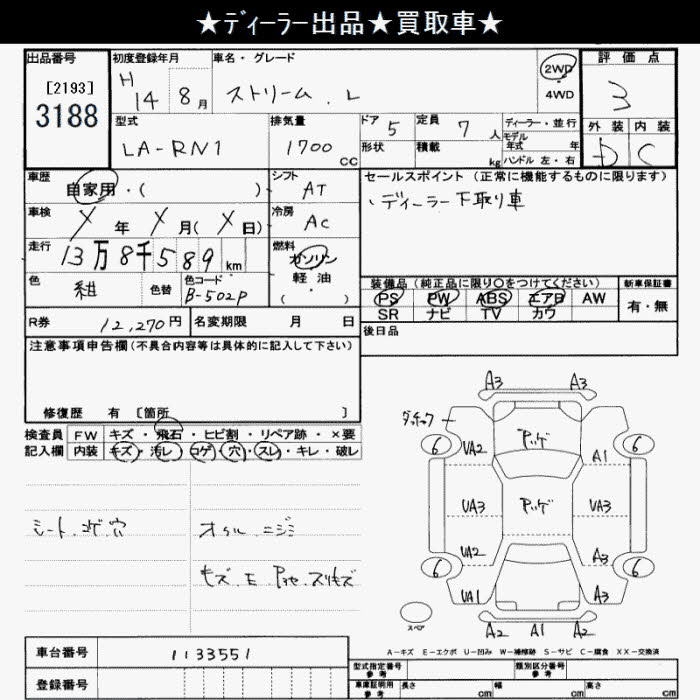 ★ディーラー出品★買取車★
出品番号 初度登録年月 車名・グレード 評価点
[2193] H 14年 8月 ストリーム . L 2WD 3
3188 4WD
型式 排気量 ドア 5 定員 7人 ディーラー・並行 外装 内装
LA-RN1 1700cc 形状 積載 kg モデル年式 年 D C
ハンドル 左・右
車歴 自家用・( ) シフト AT セールスポイント(正常に機能するものに限ります)
ディーラー下取り車
車検 X年 X月 (X日) 冷房 AC
走行 13万8千589km 燃料 ガソリン
軽油
( ・ )
色 紺 色替 色コード B-502P
装備品(純正品に限り〇をつけてください) 新車保証書
PS PW ABS エアB AW 有・無
SR ナビ TV カワ
R券 12,270円 名変期限 月 日 後日品
注意事項申告欄(不具合内容等は具体的に記入して下さい)
修復歴 有 [箇所 ]
検査員 FW キズ・飛石・ヒビ割・リペア跡・×要
記入欄 内装 キズ・汚レ・コゲ・穴・スレ・キレ・破レ
シート.コゲ.穴 オイル.ニジミ
A3 A3
6 VA2 アッゲ A1 6
VA3 アッゲ VA3
VA2 A3
6 VA1 A3 6
スペア A2 A1 A2
A-キズ E-エクボ U-凹み W-補修跡 S-サビ C-腐食 XX-交換済
車台番号 1133551
登録番号
型式指定番号 参考 類別区分番号 参考
車庫証明用 参考 長さ cm 幅 cm 高さ cm